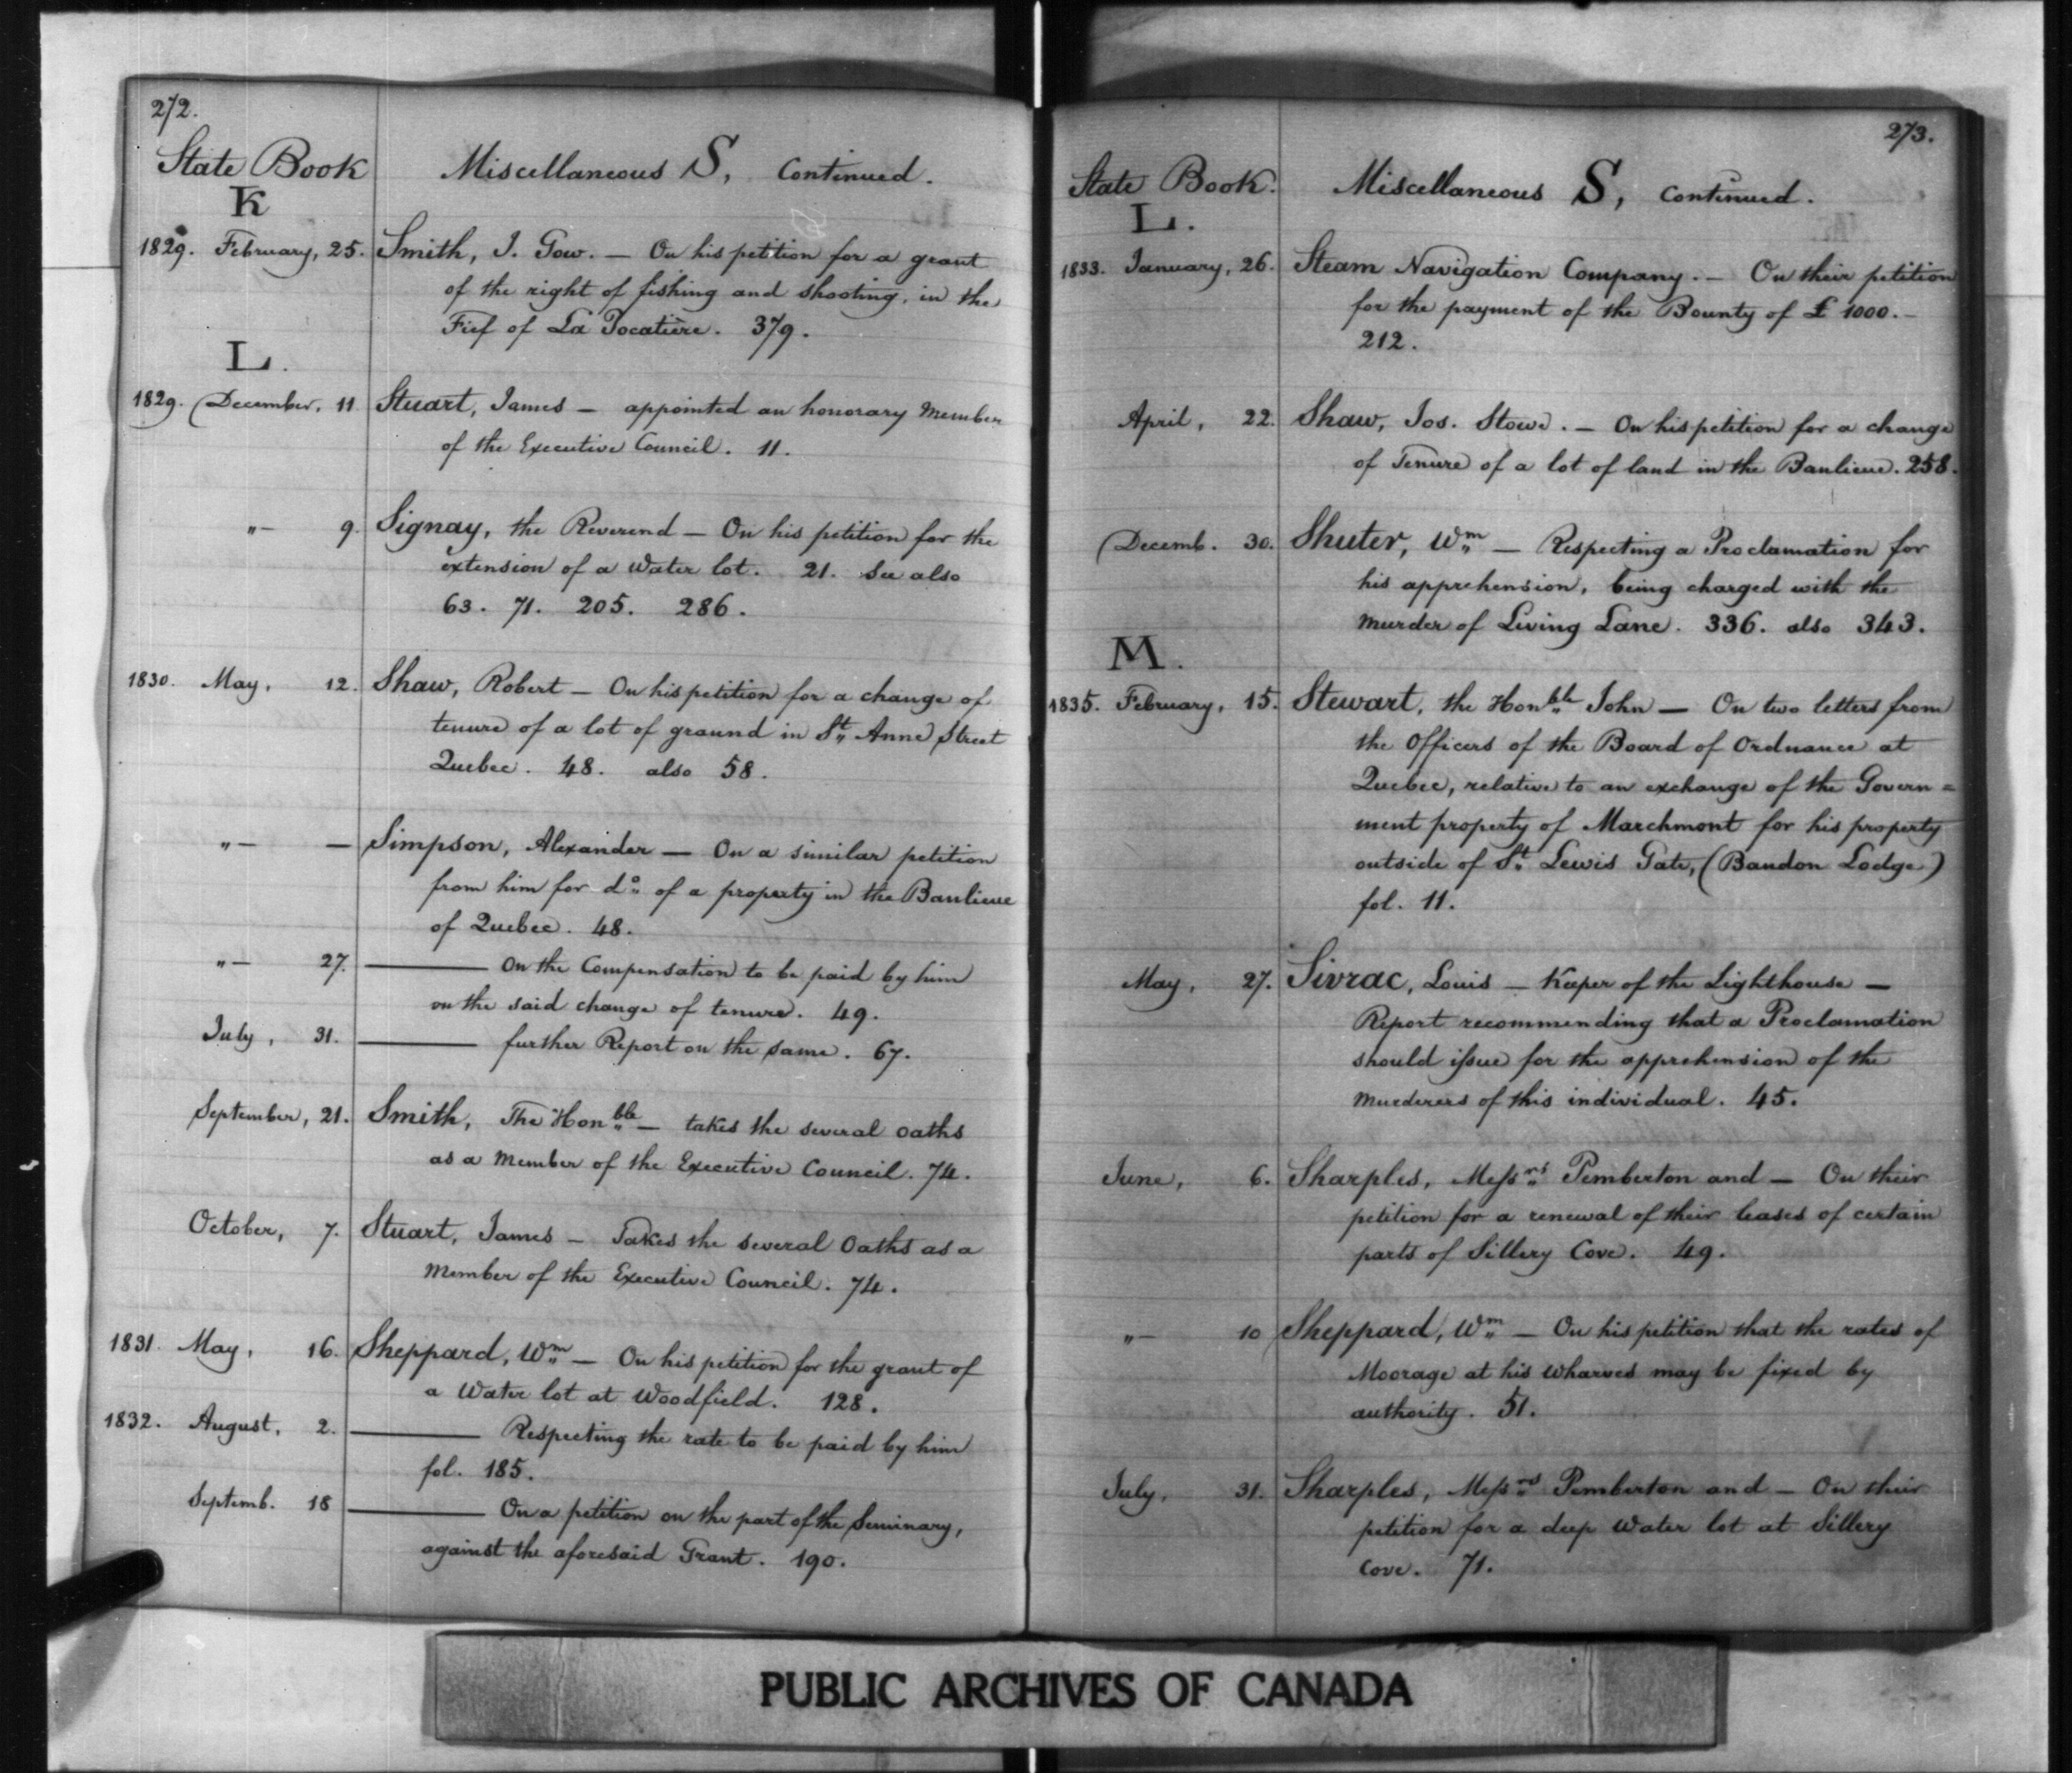 272.
State Book Miscellaneous S, Continued.
K
1829. February, 25. Smith, J. Gow. — On his petition for a grant
of the right of fishing and shooting, in the
Fief of La Pocatière. 379.
L.
1829. December, 11. Stuart, James — appointed an honorary Member
of the Executive Council. 11.
"— 9. Signay, the Reverend — On his petition for the
extension of a Water lot. 21. See also
63. 71. 205. 286.
1830. May, 12. Shaw, Robert — On his petition for a change of
tenure of a lot of ground in St. Anne Street
Quebec. 48. also 58.
"— — Simpson, Alexander — On a similar petition
from him for do. of a property in the Banlieue
of Quebec. 48.
"— 27. ——— On the Compensation to be paid by him
on the said change of tenure. 49.
July, 31. ——— further Report on the same. 67.
September, 21. Smith, The Honble — takes the several oaths
as a Member of the Executive Council. 74.
October, 7. Stuart, James — Takes the several Oaths as a
Member of the Executive Council. 74.
1831. May, 16. Sheppard, Wm — On his petition for the grant of
a Water lot at Woodfield. 128.
1832. August, 2. ——— Respecting the rate to be paid by him
fol. 185.
Septemb. 18 ——— On a petition on the part of the Seminary,
against the aforesaid Grant. 190.
273.
State Book. Miscellaneous S, Continued.
L.
1833. January, 26. Steam Navigation Company. — On their petition
for the payment of the Bounty of £ 1000. —
212.
April, 22. Shaw, Jos. Stowe. — On his petition for a change
of Tenure of a lot of land in the Banlieue. 258.
Decemb. 30. Shuter, Wm — Respecting a Proclamation for
his apprehension, being charged with the
murder of Living Lane. 336. also 343.
M.
1835. February, 15. Stewart, the Honble John — On two letters from
the Officers of the Board of Ordnance at
Quebec, relative to an exchange of the Govern=
ment property of Marchmont for his property
outside of St. Lewis Gate, (Bandon Lodge)
fol. 11.
May, 27. Sivrac, Louis — Keeper of the Lighthouse —
Report recommending that a Proclamation
should issue for the apprehension of the
murderers of this individual. 45.
June, 6. Sharples, Messrs Pemberton and — On their
petition for a renewal of their leases of certain
parts of Sillery Cove. 49.
"— 10 Sheppard, Wm — On his petition that the rates of
Moorage at his wharves may be fixed by
authority. 51.
July, 31. Sharples, Messrs Pemberton and — On their
petition for a deep Water lot at Sillery
Cove. 71.
PUBLIC ARCHIVES OF CANADA